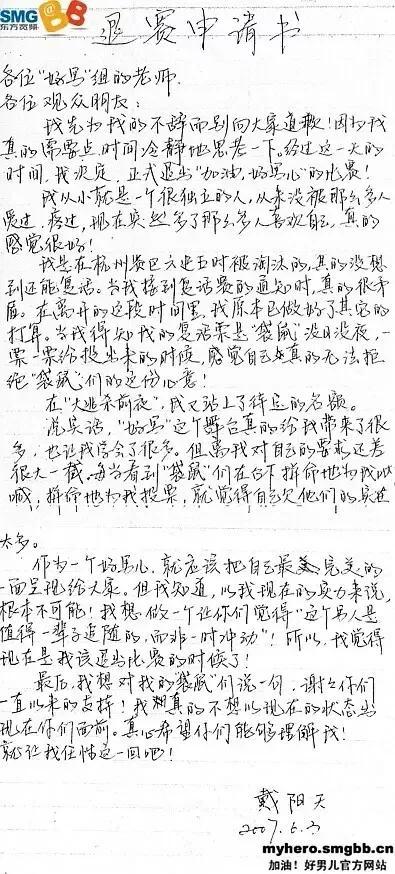 SMG BB
东方宽频
退赛申请书
各位"好男"组的老师、
各位观众朋友:
我先为我的不辞而别向大家道歉!因为我
真的需要点时间冷静地思考一下。经过这一天的
时间,我决定,正式退出"加油,好男儿"的比赛!
我从小就是一个很独立的人,从来没被那么多人
爱过,疼过,现在突然多了那么多人喜欢自己,真的
感觉很好!
我是在杭州赛区六进五时被淘汰的,真的没想
到还能复活。当我接到复活赛的通知时,真的很矛
盾。在离开的这段时间里,我原本已做好了其它的
打算。当我得知我的复活票是"袋鼠"没日没夜,一
票一票给投出来的时候,感觉自己真的无法拒
绝"袋鼠"们的这份心意!
在"大逃杀前夜",我又站上了待定的名额。
说实话,"好男"这个舞台真的给我带来了很
多,也让我学会了很多。但离我对自己的要求还差
很大一截,每当看到"袋鼠"们在台下拼命地为我呐
喊,拼命地为我投票,就觉得自己欠他们的实在
太多。
作为一个好男儿,就应该把自己最完美的
一面呈现给大家。但我知道,以我现在的实力来说,
根本不可能!我想做一个让你们觉得"这个男人是
值得一辈子追随的,而非一时冲动"!所以,我觉得
现在是我该退出比赛的时候了!
最后,我想对我的"袋鼠"们说一句,谢谢你们
一直以来的支持!我真的不想以现在的状态出
现在你们面前。真心希望你们能够理解我!
就让我任性这一回吧!
戴阳天
2007.6.3
myhero.smgbb.cn
加油!好男儿官方网站